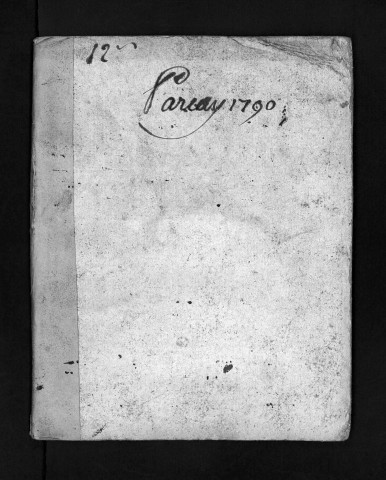 12
Parcay 1790